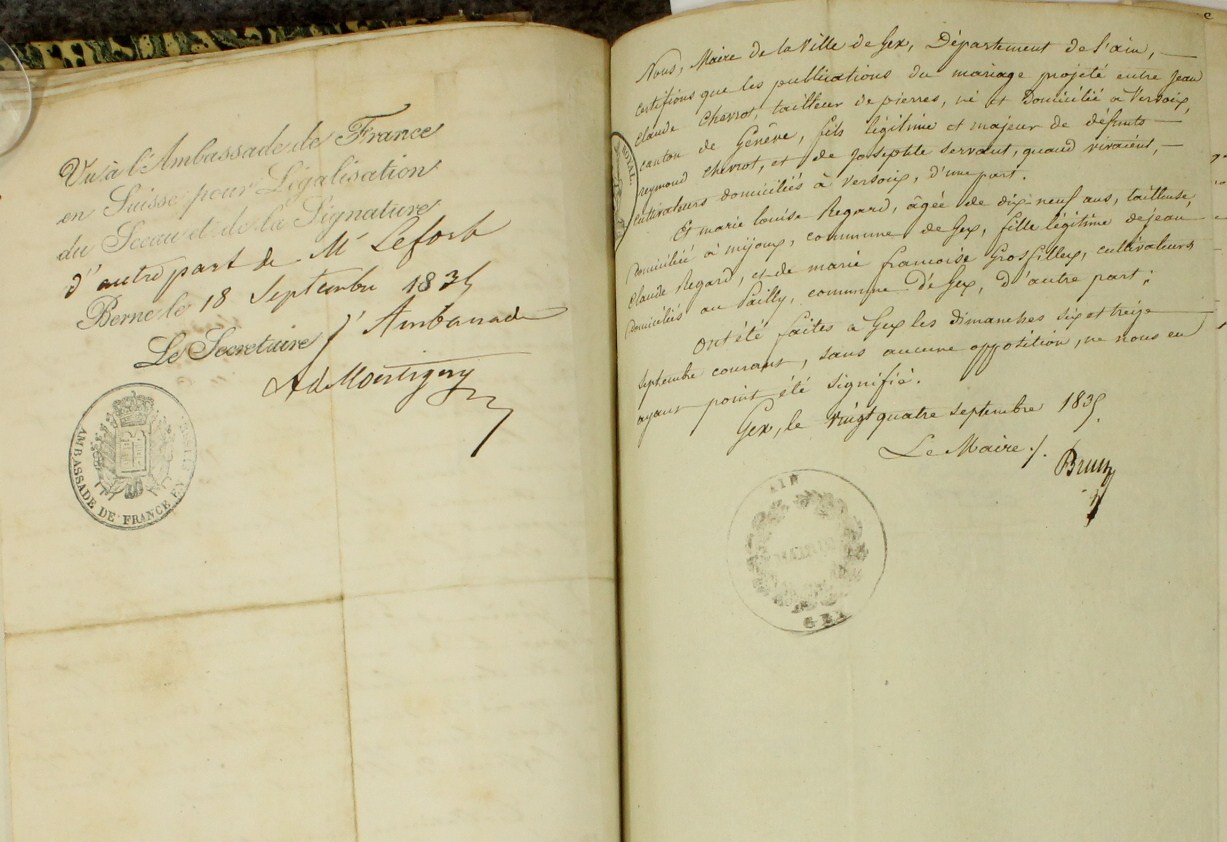 Vu à l'Ambassade de France
en Suisse pour Légalisation
du Sceau et de la Signature
d'autre part de Mr Lefort
Berne le 18 Septembre 1835
Le Secretaire d'Ambassade
A de Montigny
AMBASSADE DE FRANCE EN SUISSE
ROYAL
Nous, Maire de la Ville de Gex, Département de l'ain,
certifions que les publications du mariage projeté entre Jean
claude Chevrot, tailleur de pierres, né et domicilié à Versoix,
canton de Genêve, fils légitime et majeur de défunts
reymond Chevrot, et de Josephte servant, quand vivaient,
cultivateurs domiciliés à Versoix, d'une part.
Et marie Louise Regard, âgée de dix neuf ans, tailleuse,
domiciliée à mijoux, commune de Gex, fille légitime de jean
Claude Regard, et de marie francoise Grosfilley, cultivateurs
domiciliés au Pailly, commune de Gex, d'autre part;
Ont été faites à Gex les dimanches six et treize
septembre courant, sans aucune opposition, ne nous en
ayant point été signifié.
Gex, le vingt quatre septembre 1835
Le Maire /.
Brun
AIN
MAIRIE
GEX